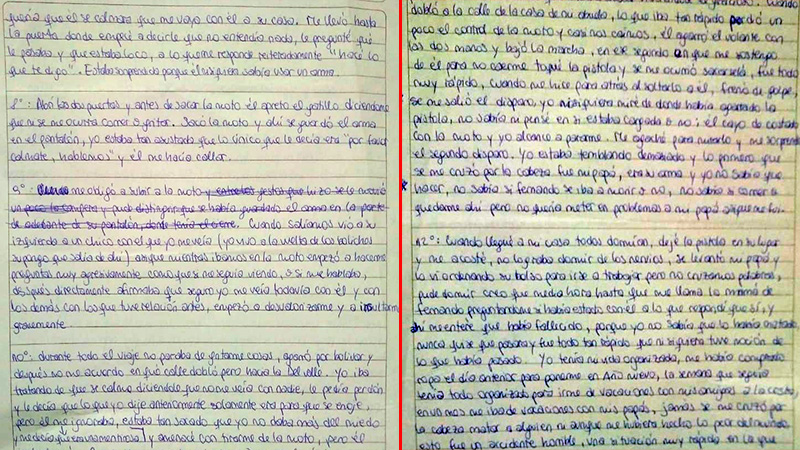 quería que él se calmara que me vaya con él a su casa. Me llevó hasta
la puerta donde empecé a decirle que no entendía nada, le pregunté qué
le pasaba y que estaba loco, a lo que me responde reiteradamente "hacé lo
que te digo". Estaba sorprendida porque él ni siquiera sabía usar un arma.
8°: Abrí las dos puertas y antes de sacar la moto él apretó el gatillo diciéndome
que ni se me ocurra correr o gritar. Sacó la moto y ahí se guardó el arma
en el pantalón, yo estaba tan asustada que lo único que le decía era "por favor
calmate, hablemos" y él me hacía callar.
9°: me obligó a subir a la moto y entre los gestos que hizo se le movió
un poco la campera y pude distinguir que se había guardado el arma en la parte
de adelante de su pantalón, donde tenía el cierre. Cuando salíamos vio a su
izquierda a un chico con el que yo me veía (yo vivo a la vuelta de los boliches
supongo que salía de ahí) así que mientras íbamos en la moto empezó a hacerme
preguntas muy agresivamente como que si no seguía viendo, o si me hablaba,
después directamente afirmaba que seguro yo me veía todavía con él y con
los demás con los que tuve relación antes, empezó a desvalorizarme y a insultarme
gravemente.
10°: durante todo el viaje no paraba de gritarme cosas, agarró por bolivar y
después no me acuerdo en qué calle dobló pero hacia la del valle. Yo iba
tratando de que se calme diciéndole que no me veía con nadie, le pedía perdón
y le decía que lo que yo dije anteriormente solamente era para que se enoje,
pero él me ignoraba, estaba tan sacado que yo no daba más del miedo
y amenacé con tirarme de la moto, pero él
dobló a la calle de la casa de mi abuela, lo que iba tan rápido perdió un
poco el control de la moto y casi nos caímos, él agarró el volante con
las dos manos y bajó la marcha, en ese segundo en que me sostengo
de él para no caerme toqué la pistola y se me ocurrió sacársela, fue todo
muy rápido, cuando me hice para atrás al soltarlo a él, frenó de golpe,
se me salió el disparo, yo ni siquiera miré de donde había agarrado la
pistola, no sabía ni pensé en si estaba cargada o no; él cayó de costado
con la moto y yo alcancé a pararme. Me agaché para mirarlo y me sorprendió
el segundo disparo. Yo estaba temblando demasiado y lo primero que
se me cruzó por la cabeza fue mi papá, era su arma y yo no sabía qué
hacer, no sabía si fernando se iba a morir o no, no sabía si correr o
quedarme ahí pero no quería meter en problemas a mi papá así que me fui.
12°: Cuando llegué a mi casa todos dormían, dejé la pistola en su lugar
y me acosté, no lograba dormir de los nervios, se levantó mi papá y
lo vi ordenando su bolso para irse a trabajar pero no cruzamos palabras,
pude dormir creo que media hora hasta que me llama la mamá de
fernando preguntándome si había estado con él a lo que respondí que sí, y
ahí me enteré que había fallecido, porque yo no sabía que lo había matado
nunca quise que pasara y fue todo tan rápido que ni siquiera tuve noción de
lo que había pasado. Yo tenía mi vida organizada, me había comprado
ropa el día anterior para ponerme en Año nuevo, la semana que seguía
tenía todo organizado para irme de vacaciones con mis amigas a la costa,
en unos me iba de vacaciones con mis papás, jamás se me cruzó por
la cabeza matar a alguien ni aunque me hubiera hecho lo peor del mundo,
esto fue un accidente horrible, una situación muy rápida en la que